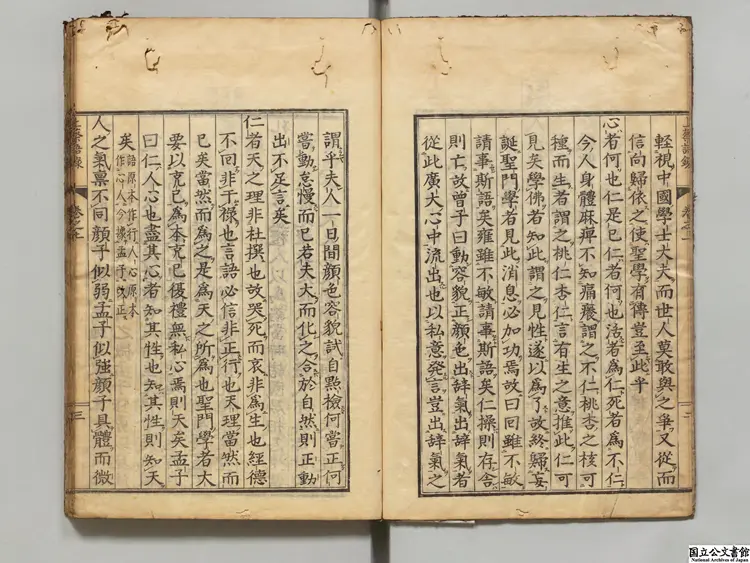 輕視中國學士大夫而世人莫敢與之爭又從而
信向歸依之使聖學有傳豈至此乎
心者何也仁是已仁者何也活者為仁死者為不仁
今人身體麻痺不知痛癢謂之不仁桃杏之核可
種而生者謂之桃仁杏仁言有生之意推此仁可
見矣學佛者知此謂之見性遂以為了故終歸妄
誕聖門學者見此消息必加功焉故曰回雖不敏
請事斯語矣雍雖不敏請事斯語矣仁操則存舍
則亡故曾子曰動容貌正顔色出辞氣出辞氣者
從此廣大心中流出也以私意發言豈出辞氣之
謂乎夫人一日間顔色容貌試自點檢何嘗正何
嘗動怠慢而已若夫大而化之合於自然則正動
出不足言矣
仁者天之理非杜撰也故哭死而哀非為生也經德
不回非干祿也言語必信非正行也天理當然而
已矣當然而為之是為天之所為也聖門學者大
要以克己為本克己復禮無私心焉則天矣孟子
曰仁人心也盡其心者知其性也知其性則知天
矣語原本作行人心原本
作心人今據孟子改正
人之氣稟不同顔子似弱孟子似強顔子具體而微
三
国立公文書館
National Archives of Japan